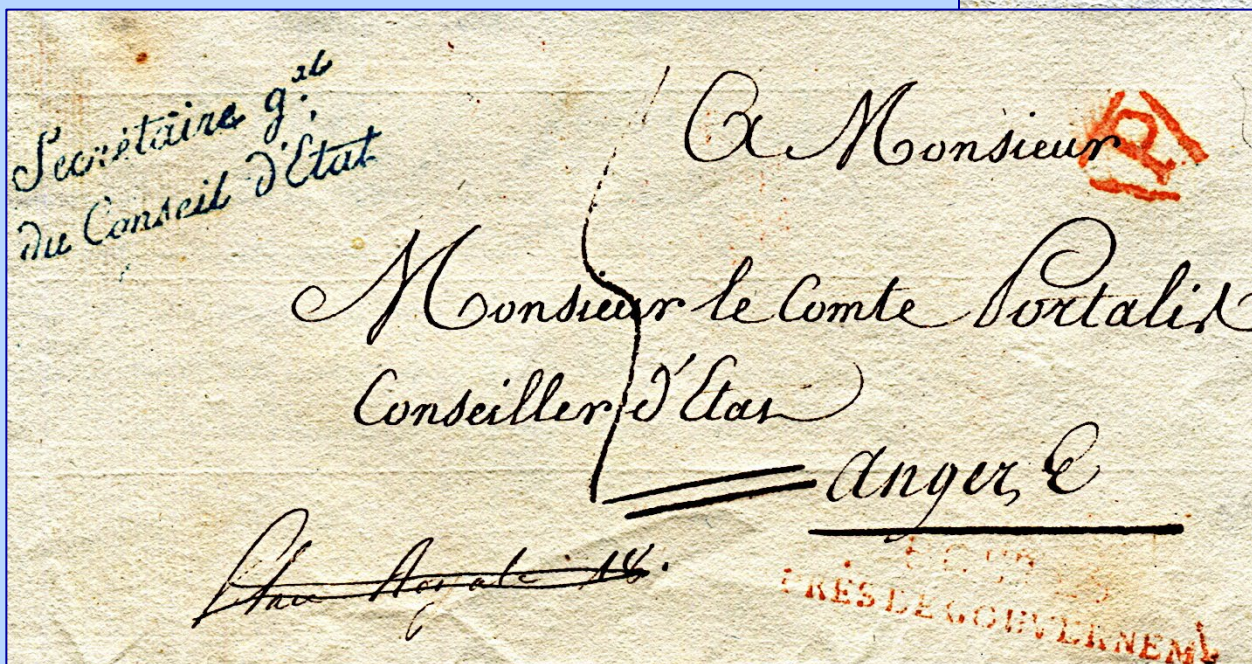 Secrétaire g.al
du Conseil d'Etat
A Monsieur
P
Monsieur le Comte Portalis
Conseiller d'Etat
Angers
Place Royale 18.
PRES LE GOUVERNEM